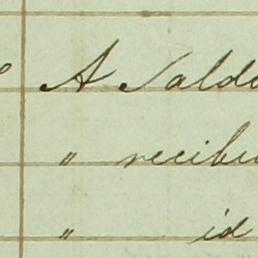 A Saldo
" recibu
" id